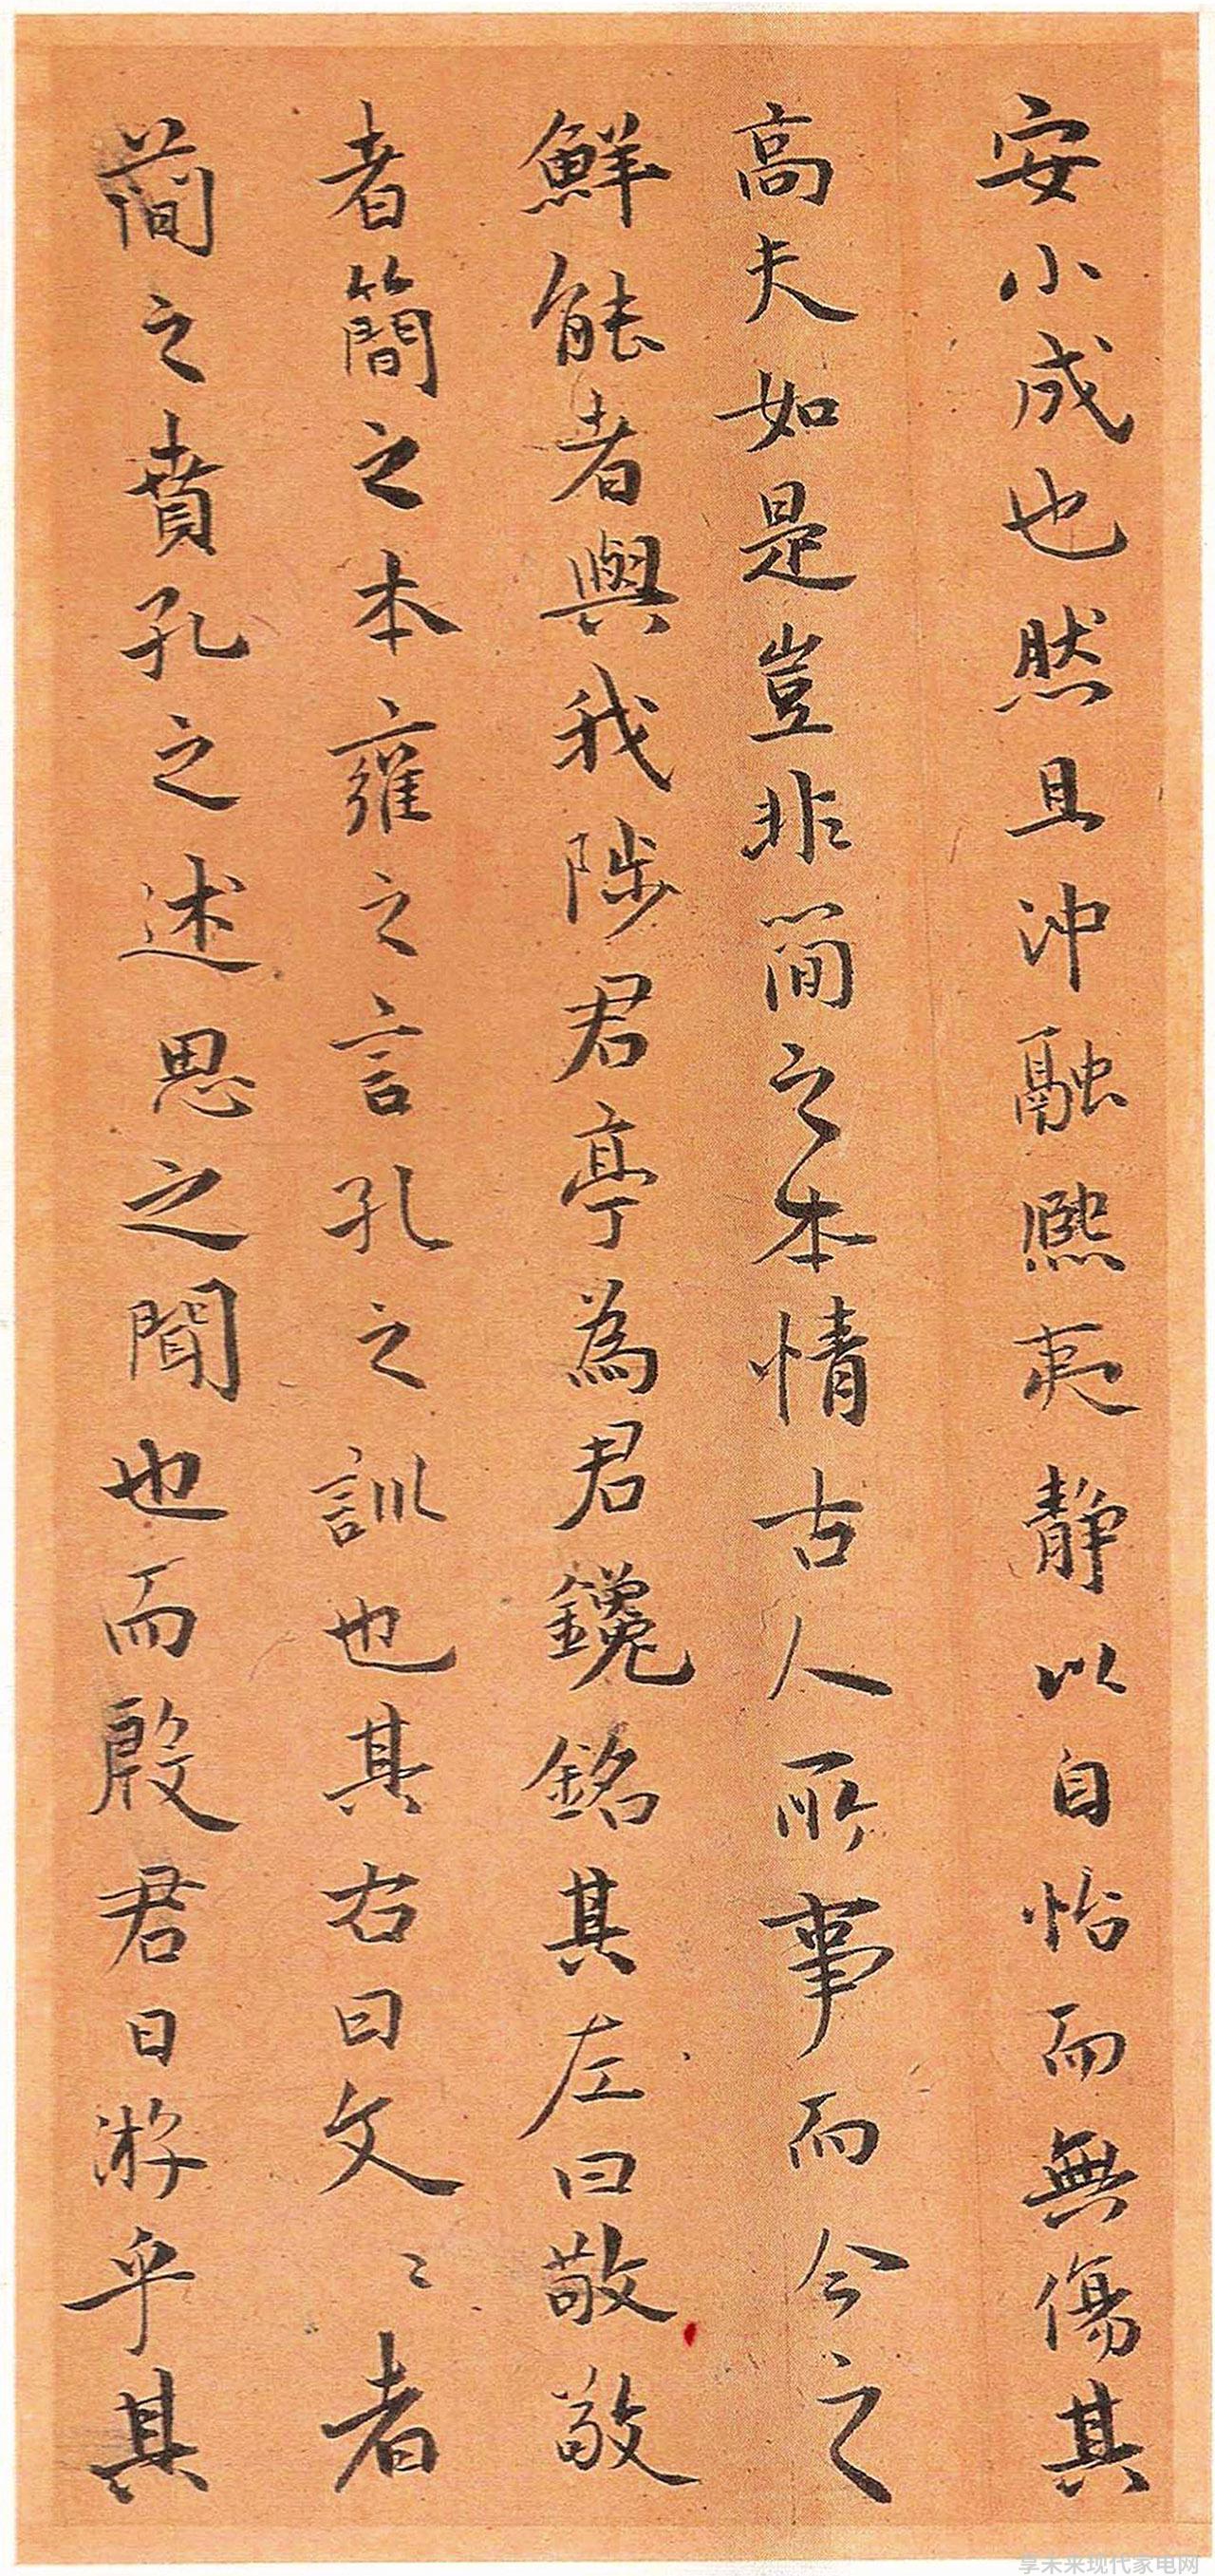 安小成也然且沖融熙夷靜以自怡而無傷其
高夫如是豈非簡之本情古人所事而今之
鮮能者與我陟君亭為君鑱銘其左曰敬敬
者簡之本雍之言孔之訓也其右曰文〻者
簡之賁孔之述思之聞也而殷君日游乎其
享未来现代家电网